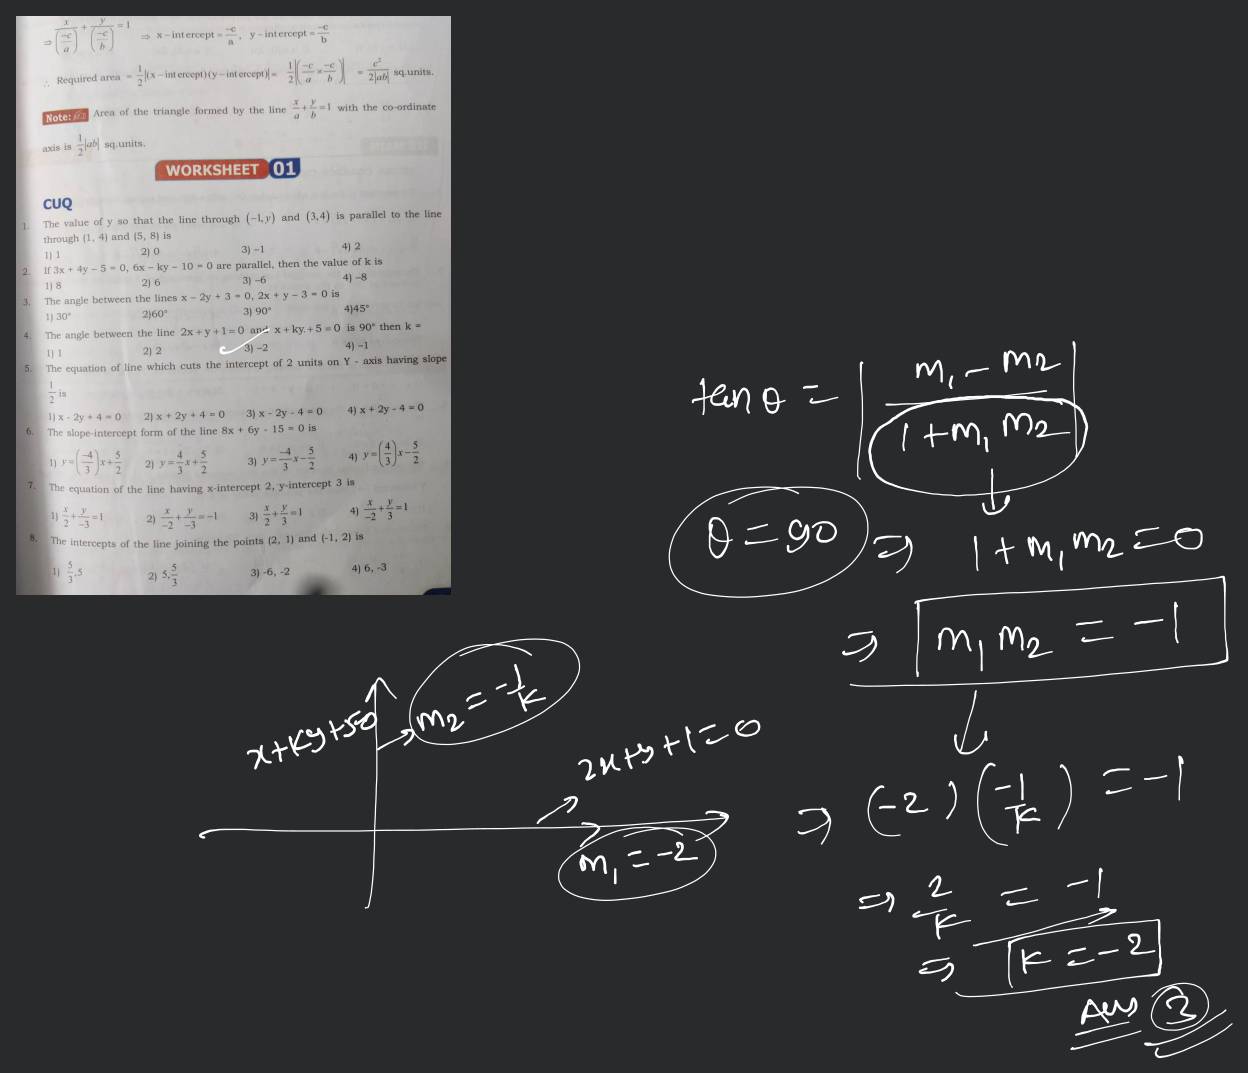 ⇒ x/(-c/a) + y/(-c/b) = 1 ⇒ x-intercept = -c/a, y-intercept = -c/b
∴ Required area = 1/2|(x-intercept)(y-intercept)| = 1/2|(-c/a × -c/b)| = c²/2|ab| sq.units.
Note: Area of the triangle formed by the line x/a + y/b = 1 with the co-ordinate
axis is 1/2|ab| sq.units.
WORKSHEET 01
CUQ
1. The value of y so that the line through (-1,y) and (3,4) is parallel to the line
through (1, 4) and (5, 8) is
1) 1 2) 0 3) -1 4) 2
2. If 3x + 4y - 5 = 0, 6x - ky - 10 = 0 are parallel, then the value of k is
1) 8 2) 6 3) -6 4) -8
3. The angle between the lines x - 2y + 3 = 0, 2x + y - 3 = 0 is
1) 30° 2)60° 3) 90° 4)45°
4. The angle between the line 2x+y+1=0 and x+ky.+5=0 is 90° then k =
1) 1 2) 2 3) -2 4) -1
5. The equation of line which cuts the intercept of 2 units on Y - axis having slope
1/2 is
1) x - 2y + 4 = 0 2) x + 2y + 4 = 0 3) x - 2y - 4 = 0 4) x + 2y - 4 = 0
6. The slope-intercept form of the line 8x + 6y - 15 = 0 is
1) y=(-4/3)x+5/2 2) y=4/3x+5/2 3) y=-4/3x-5/2 4) y=(4/3)x-5/2
7. The equation of the line having x-intercept 2, y-intercept 3 is
1) x/2+y/-3=1 2) x/-2+y/-3=-1 3) x/2+y/3=1 4) x/-2+y/3=1
8. The intercepts of the line joining the points (2, 1) and (-1, 2) is
1) 5/3,5 2) 5,5/3 3) -6, -2 4) 6, -3
tan θ = |(m₁ - m₂)/(1 + m₁ m₂)|
θ = 90 ⇒ 1 + m₁ m₂ = 0
⇒ m₁ m₂ = -1
x+ky+5=0 m₂ = -1/k
2x+y+1=0
m₁ = -2
⇒ (-2)(-1/k) = -1
⇒ 2/k = -1
⇒ k = -2
Ans 3